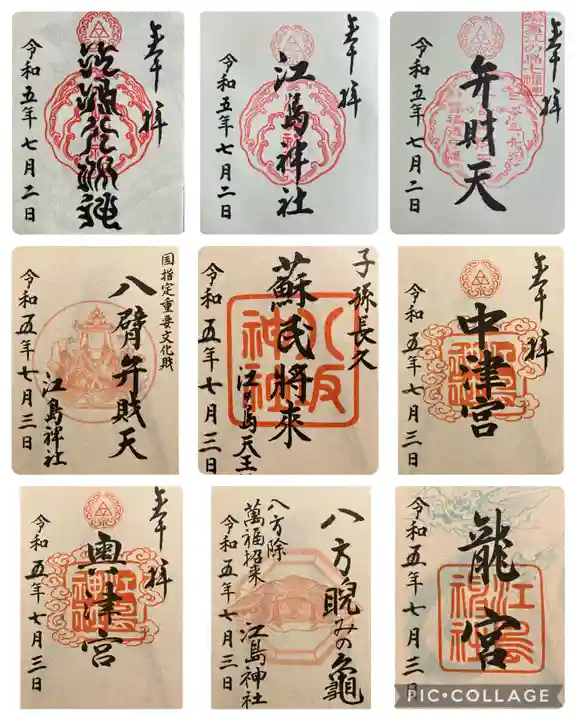 奉拝
令和五年七月二日
奉拝
江島神社
令和五年七月二日
奉拝
弁財天
令和五年七月二日
国指定重要文化財
八臂弁財天
江島神社
令和五年七月三日
子孫長久
蘇民将来
江ノ島天王
八坂神社
令和五年七月三日
奉拝
中津宮
令和五年七月三日
奉拝
奥津宮
令和五年七月三日
八方睨みの亀
八方除
萬福招来
江島神社
令和五年七月三日
龍宮
江島神社
令和五年七月三日
PIC•COLLAGE